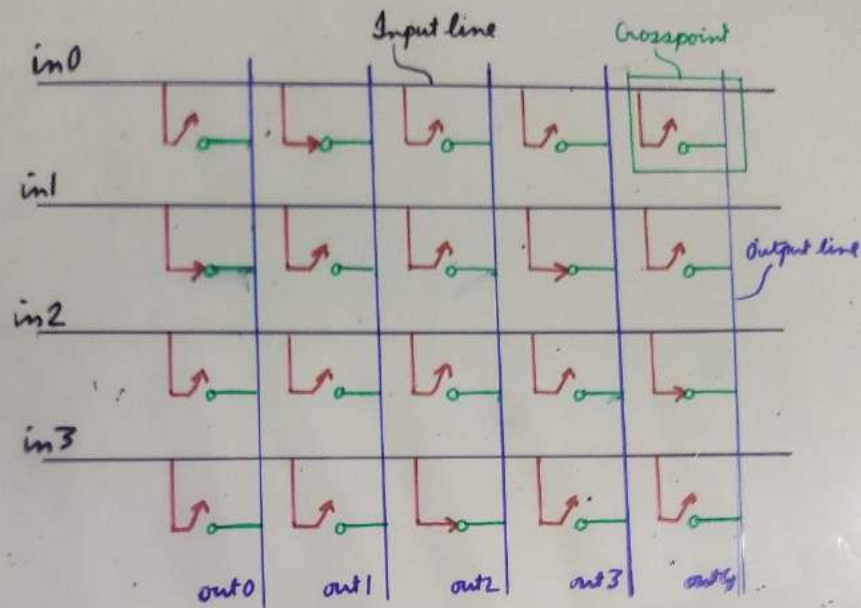 Input line
Crosspoint
in0
in1
Output line
in2
in3
out0
out1
out2
out3
out4